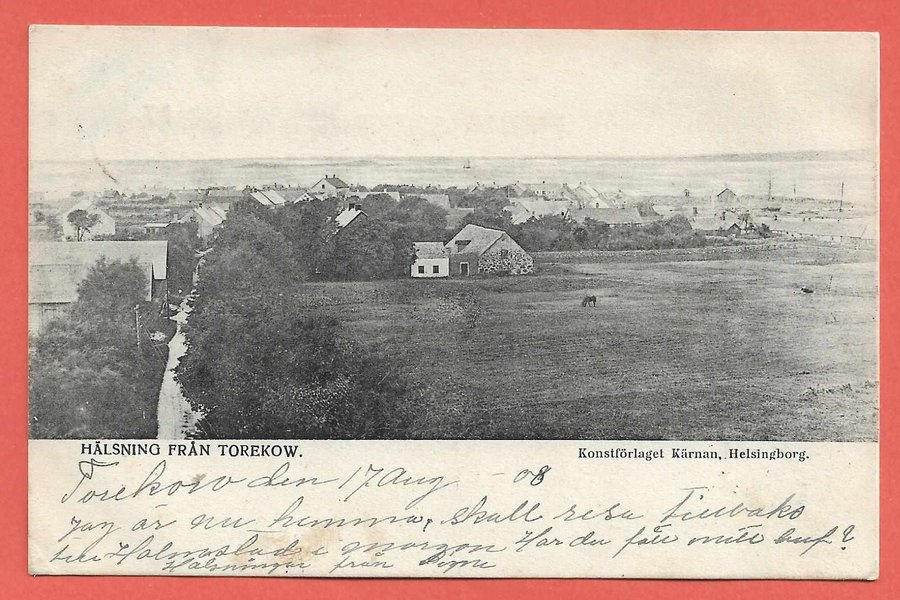 HÄLSNING FRÅN TOREKOW.
Konstförlaget Kärnan, Helsingborg.
Torekov den 17 Aug - 08
Jag är nu hemma, skall resa tilbaks
till Halmstad i morgon Har du fått mitt bref?
Hälsningar från Signe